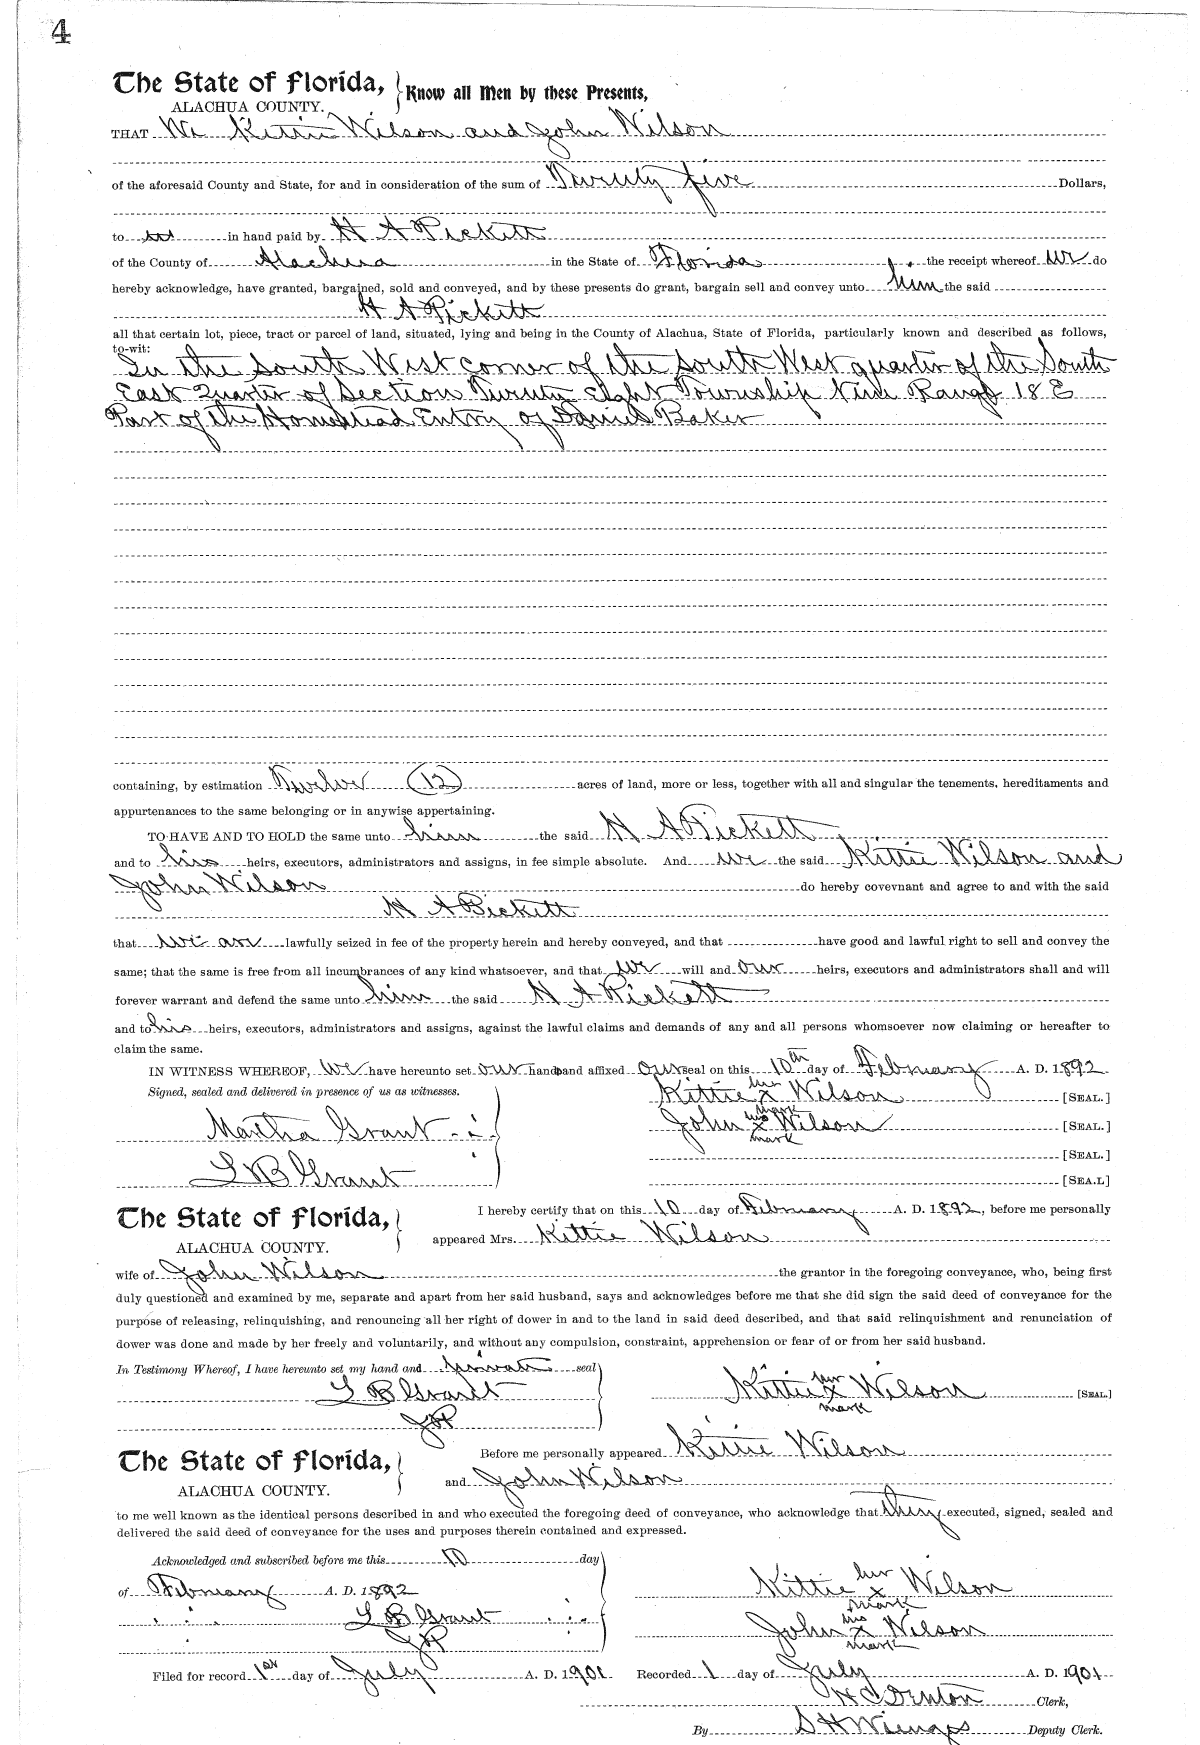 4
The State of Florida, Know all Men by these Presents,
ALACHUA COUNTY.
THAT We Kittie Wilson and John Wilson
of the aforesaid County and State, for and in consideration of the sum of Twenty five Dollars,
to us in hand paid by H A Pickett
of the County of Alachua in the State of Florida, the receipt whereof we do
hereby acknowledge, have granted, bargained, sold and conveyed, and by these presents do grant, bargain sell and convey unto him the said
H A Pickett
all that certain lot, piece, tract or parcel of land, situated, lying and being in the County of Alachua, State of Florida, particularly known and described as follows,
to-wit:
In the South West corner of the South West quarter of the South
East Quarter of Section Twenty Eight Township Nine Range 18 E
Part of the Homestead Entry of Daniel Baker
containing, by estimation Twelve (12) acres of land, more or less, together with all and singular the tenements, hereditaments and
appurtenances to the same belonging or in anywise appertaining.
TO HAVE AND TO HOLD the same unto him the said H A Pickett
and to his heirs, executors, administrators and assigns, in fee simple absolute. And we the said Kittie Wilson and
John Wilson do hereby covevnant and agree to and with the said
H A Pickett
that we are lawfully seized in fee of the property herein and hereby conveyed, and that have good and lawful right to sell and convey the
same; that the same is free from all incumbrances of any kind whatsoever, and that we will and our heirs, executors and administrators shall and will
forever warrant and defend the same unto him the said H A Pickett
and to his heirs, executors, administrators and assigns, against the lawful claims and demands of any and all persons whomsoever now claiming or hereafter to
claim the same.
IN WITNESS WHEREOF, we have hereunto set our hands and affixed our seal on this 10th day of February A. D. 1892
Signed, sealed and delivered in presence of us as witnesses. Kittie her x mark Wilson [SEAL.]
Martha Grant John his x mark Wilson [SEAL.]
[SEAL.]
L B Grant [SEA.L]
The State of Florida, I hereby certify that on this 10 day of February A. D. 1892, before me personally
ALACHUA COUNTY. appeared Mrs. Kittie Wilson
wife of John Wilson the grantor in the foregoing conveyance, who, being first
duly questioned and examined by me, separate and apart from her said husband, says and acknowledges before me that she did sign the said deed of conveyance for the
purpose of releasing, relinquishing, and renouncing all her right of dower in and to the land in said deed described, and that said relinquishment and renunciation of
dower was done and made by her freely and voluntarily, and without any compulsion, constraint, apprehension or fear of or from her said husband.
In Testimony Whereof, I have hereunto set my hand and private seal
L B Grant Kittie her x mark Wilson [SEAL.]
JP
The State of Florida, Before me personally appeared Kittie Wilson
ALACHUA COUNTY. and John Wilson
to me well known as the identical persons described in and who executed the foregoing deed of conveyance, who acknowledge that they executed, signed, sealed and
delivered the said deed of conveyance for the uses and purposes therein contained and expressed.
Acknowledged and subscribed before me this 10 day
of February A. D. 1892 Kittie her x mark Wilson
L B Grant John his x mark Wilson
JP
Filed for record 1st day of July A. D. 1901 Recorded 1 day of July A. D. 1901
Clerk,
By Deputy Clerk.